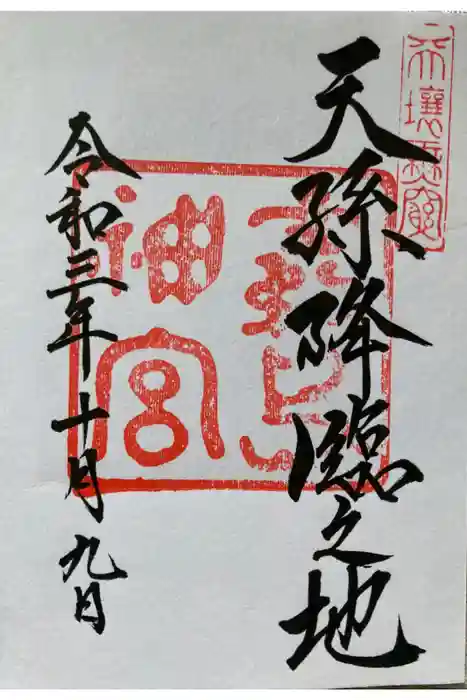 天壤無窮
天孫降臨之地
霧島
神宮
令和三年十月九日